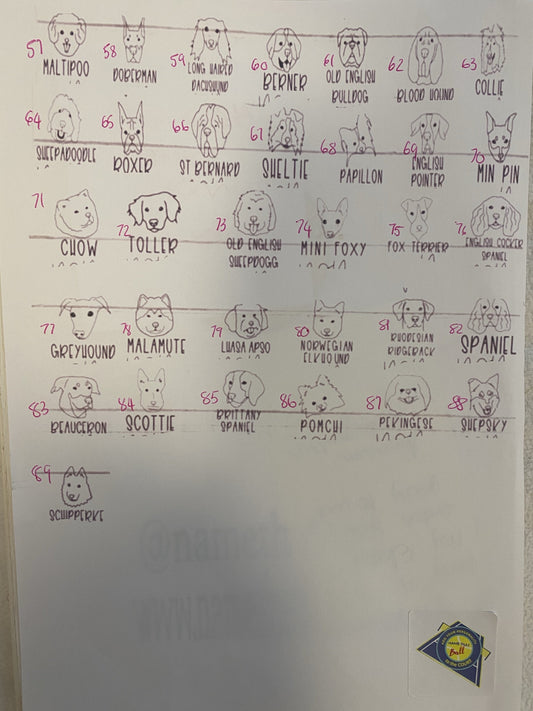 57 58 59 60 61 62 63
MALTIPOO DOBERMAN LONG HAIRED DACHSHUND BERNER OLD ENGLISH BULLDOG BLOOD HOUND COLLIE
64 65 66 67 68 69 70
SHEEPADOODLE BOXER ST BERNARD SHELTIE PAPILLON ENGLISH POINTER MIN PIN
71 72 73 74 75 76
CHOW TOLLER OLD ENGLISH SHEEPDOGG MINI FOXY FOX TERRIER ENGLISH COCKER SPANIEL
77 78 79 80 81 82
GREYHOUND MALAMUTE LHASA APSO NORWEGIAN ELKHOUND RHODESIAN RIDGEBACK SPANIEL
83 84 85 86 87 88
BEAUCERON SCOTTIE BRITTANY SPANIEL POMCHI PEKINGESE SHEPSKY
89
SCHIPPERKE
NAME THAT
Ball